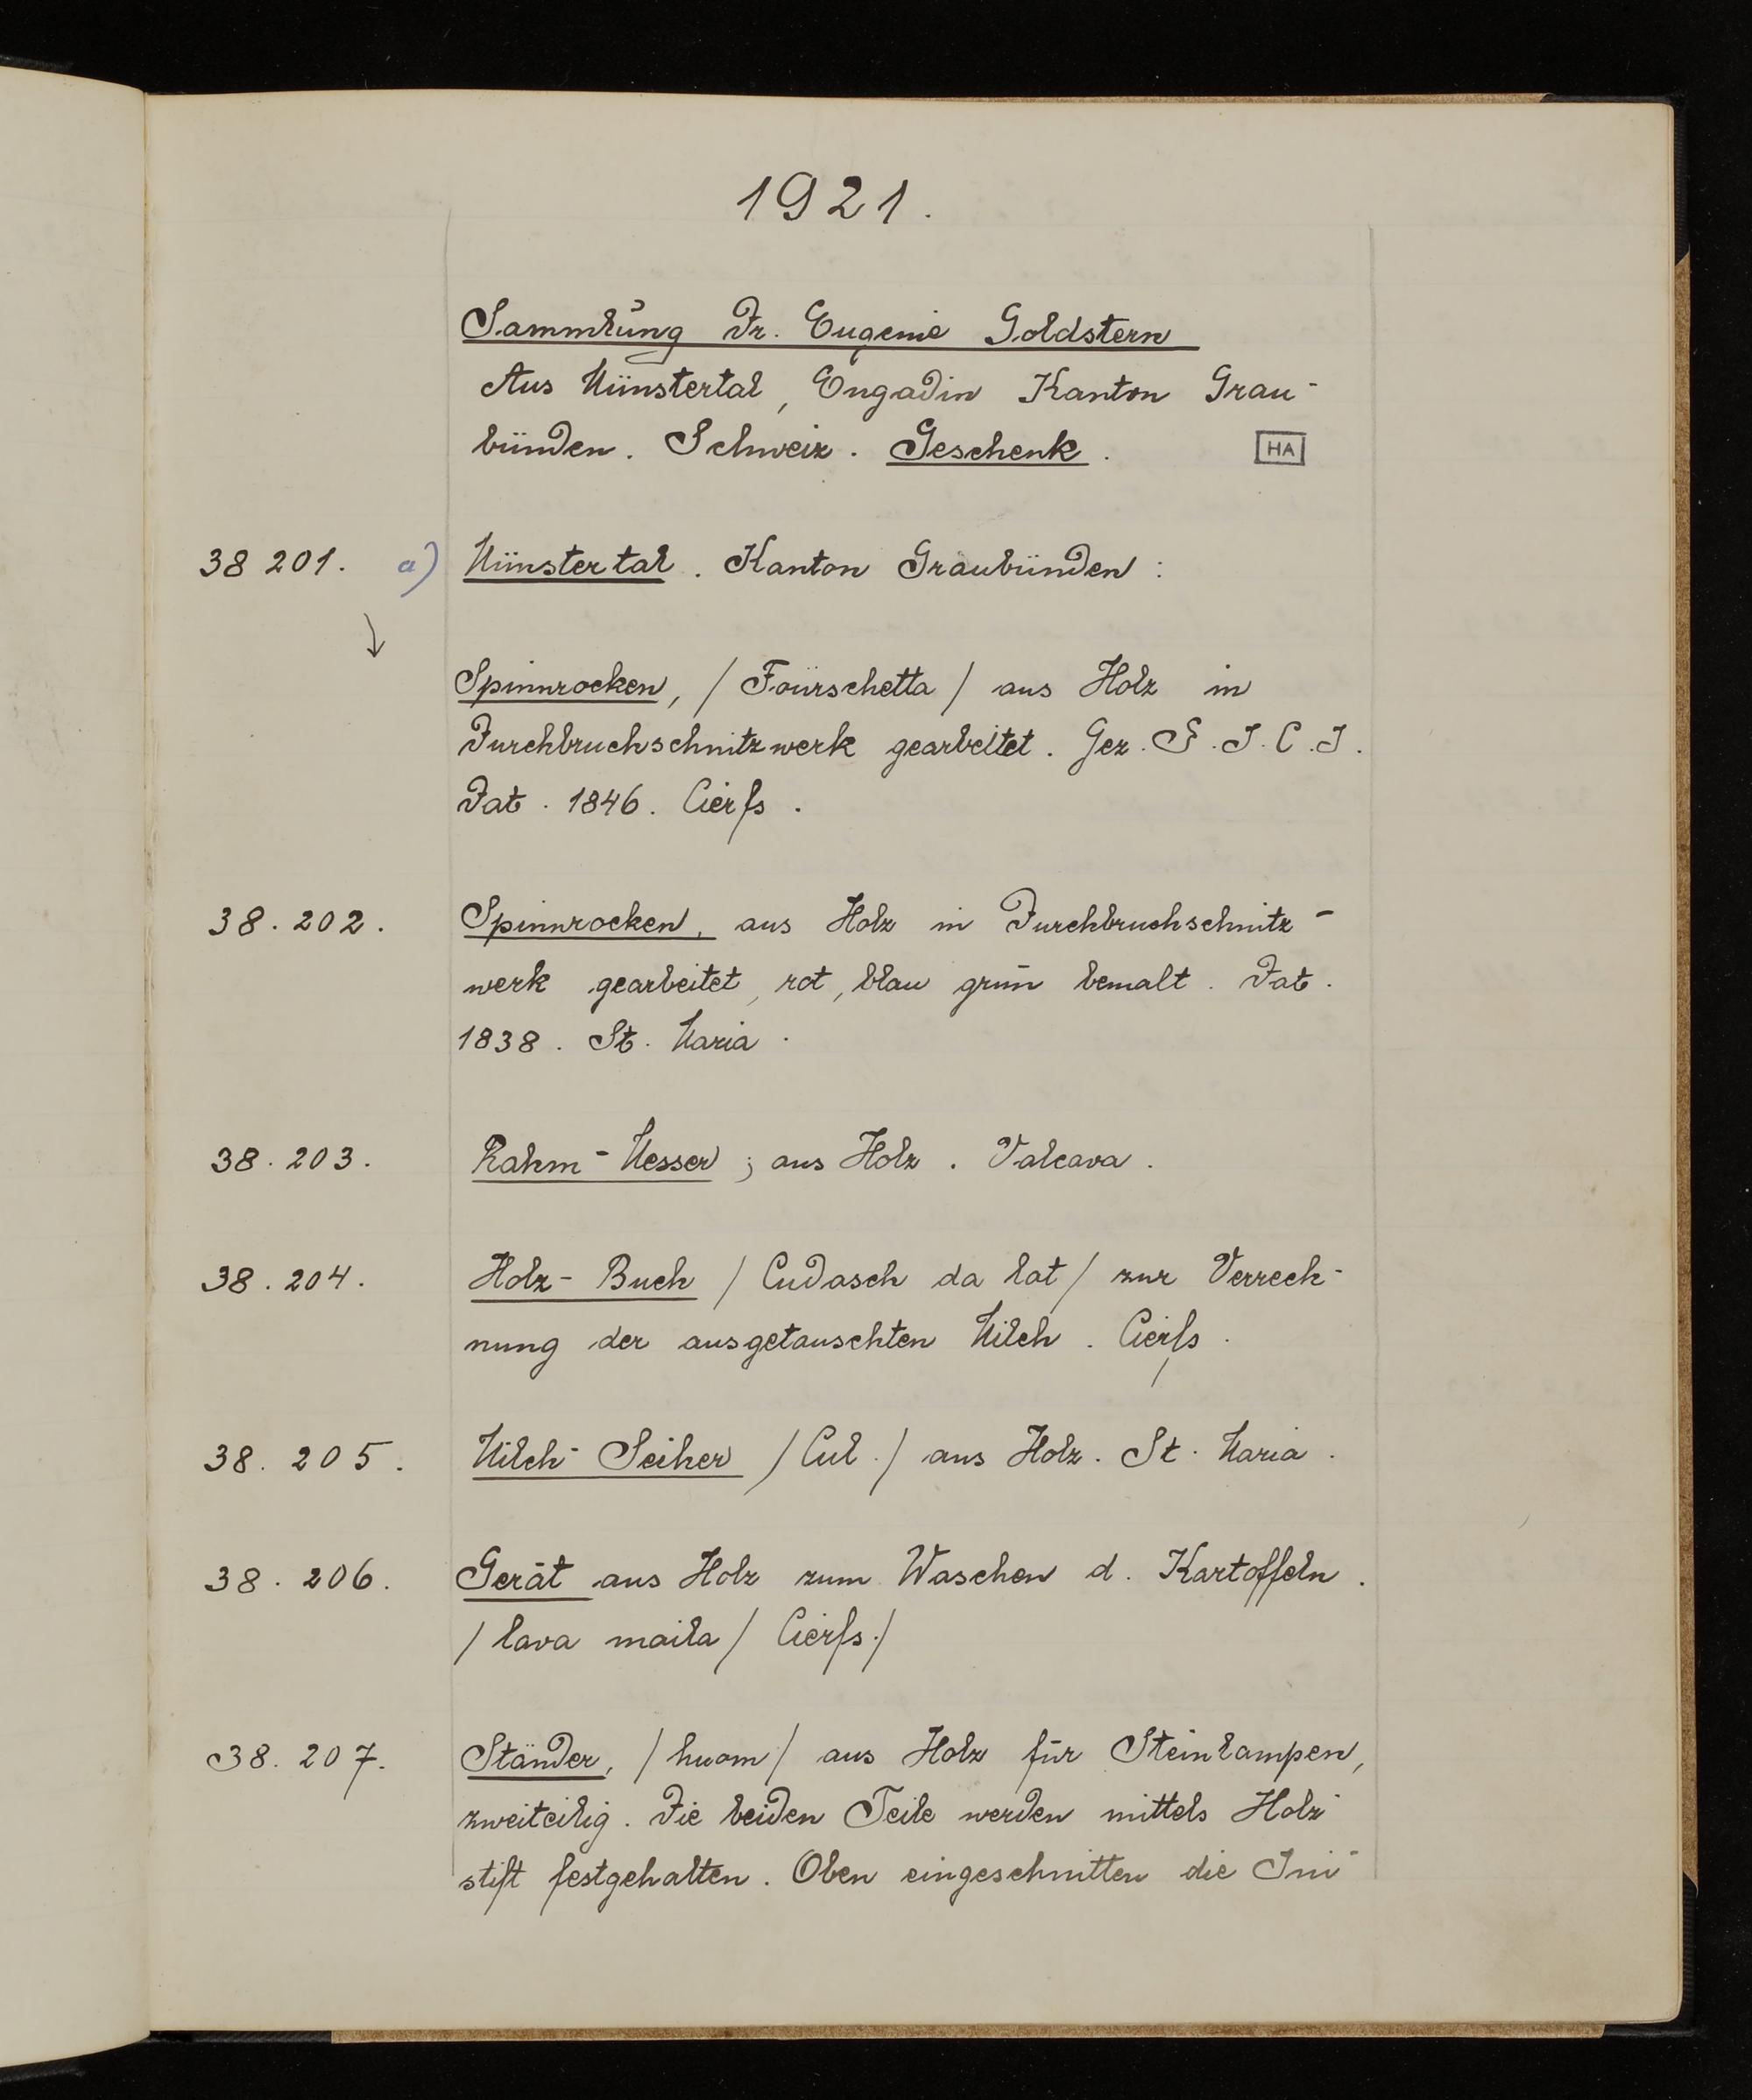 1921.
Sammlung Dr. Eugenie Goldstern
Aus Münstertal, Engadin Kanton Grau-
bünden. Schweiz. Geschenk. HA
38 201. a) Münstertal. Kanton Graubünden:
Spinnrocken, / Fourschetta / aus Holz in
Durchbruchschnitzwerk gearbeitet. Gez. E. J. C. J.
Dat. 1846. Cierfs.
38.202. Spinnrocken, aus Holz in Durchbruchschnitz-
werk gearbeitet, rot, blau grün bemalt. Dat.
1838. St. Maria.
38.203. Rahm-Messer; aus Holz. Valcava.
38.204. Holz-Buch / Cudasch da lat / zur Verrech-
nung der ausgetauschten Milch. Cierfs.
38.205. Milch-Seiher / Cul. / aus Holz. St. Maria.
38.206. Gerät aus Holz zum Waschen d. Kartoffeln.
/ lava maila / Cierfs./
38.207. Ständer, / huom / aus Holz für Steinlampen,
zweiteilig. Die beiden Teile werden mittels Holz-
stift festgehalten. Oben eingeschnitten die Ini-